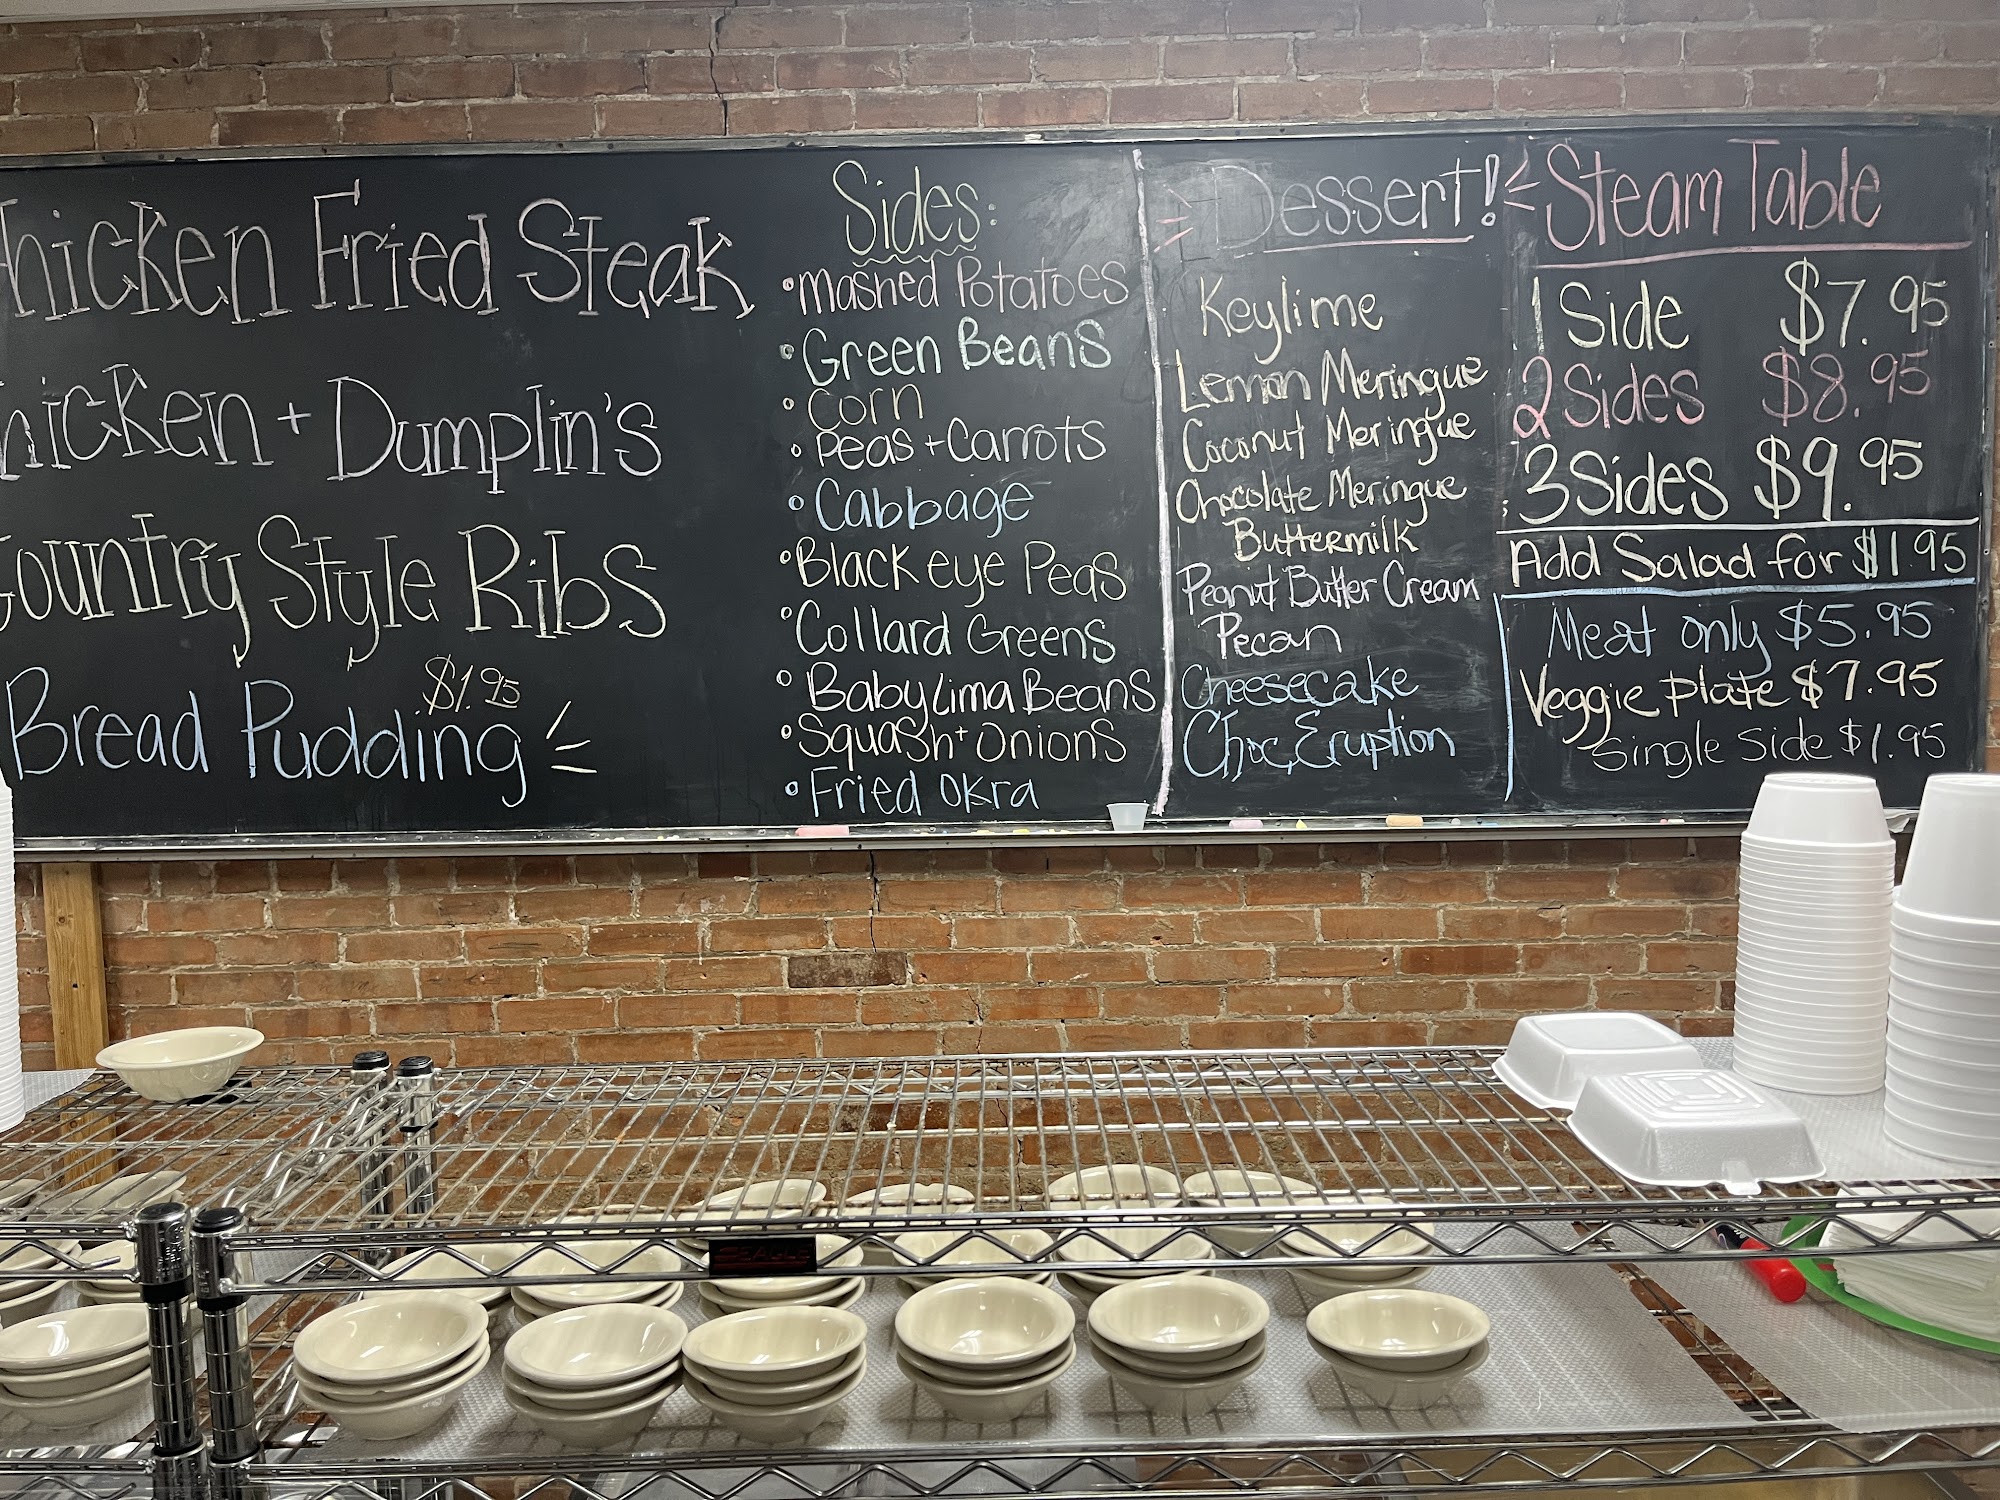 hicken Fried Steak
hicken + Dumplin's
ountry Style Ribs
$1.95
Bread Pudding
Sides:
• Mashed Potatoes
• Green Beans
• Corn
• Peas + Carrots
• Cabbage
• Black eye Peas
• Collard Greens
• Baby Lima Beans
• Squash + Onions
• Fried Okra
Dessert!
Keylime
Lemon Meringue
Coconut Meringue
Chocolate Meringue
Buttermilk
Peanut Butter Cream
Pecan
Cheesecake
Choc. Eruption
Steam Table
1 Side $7.95
2 Sides $8.95
3 Sides $9.95
Add Salad for $1.95
Meat only $5.95
Veggie Plate $7.95
Single Side $1.95
EAGLE